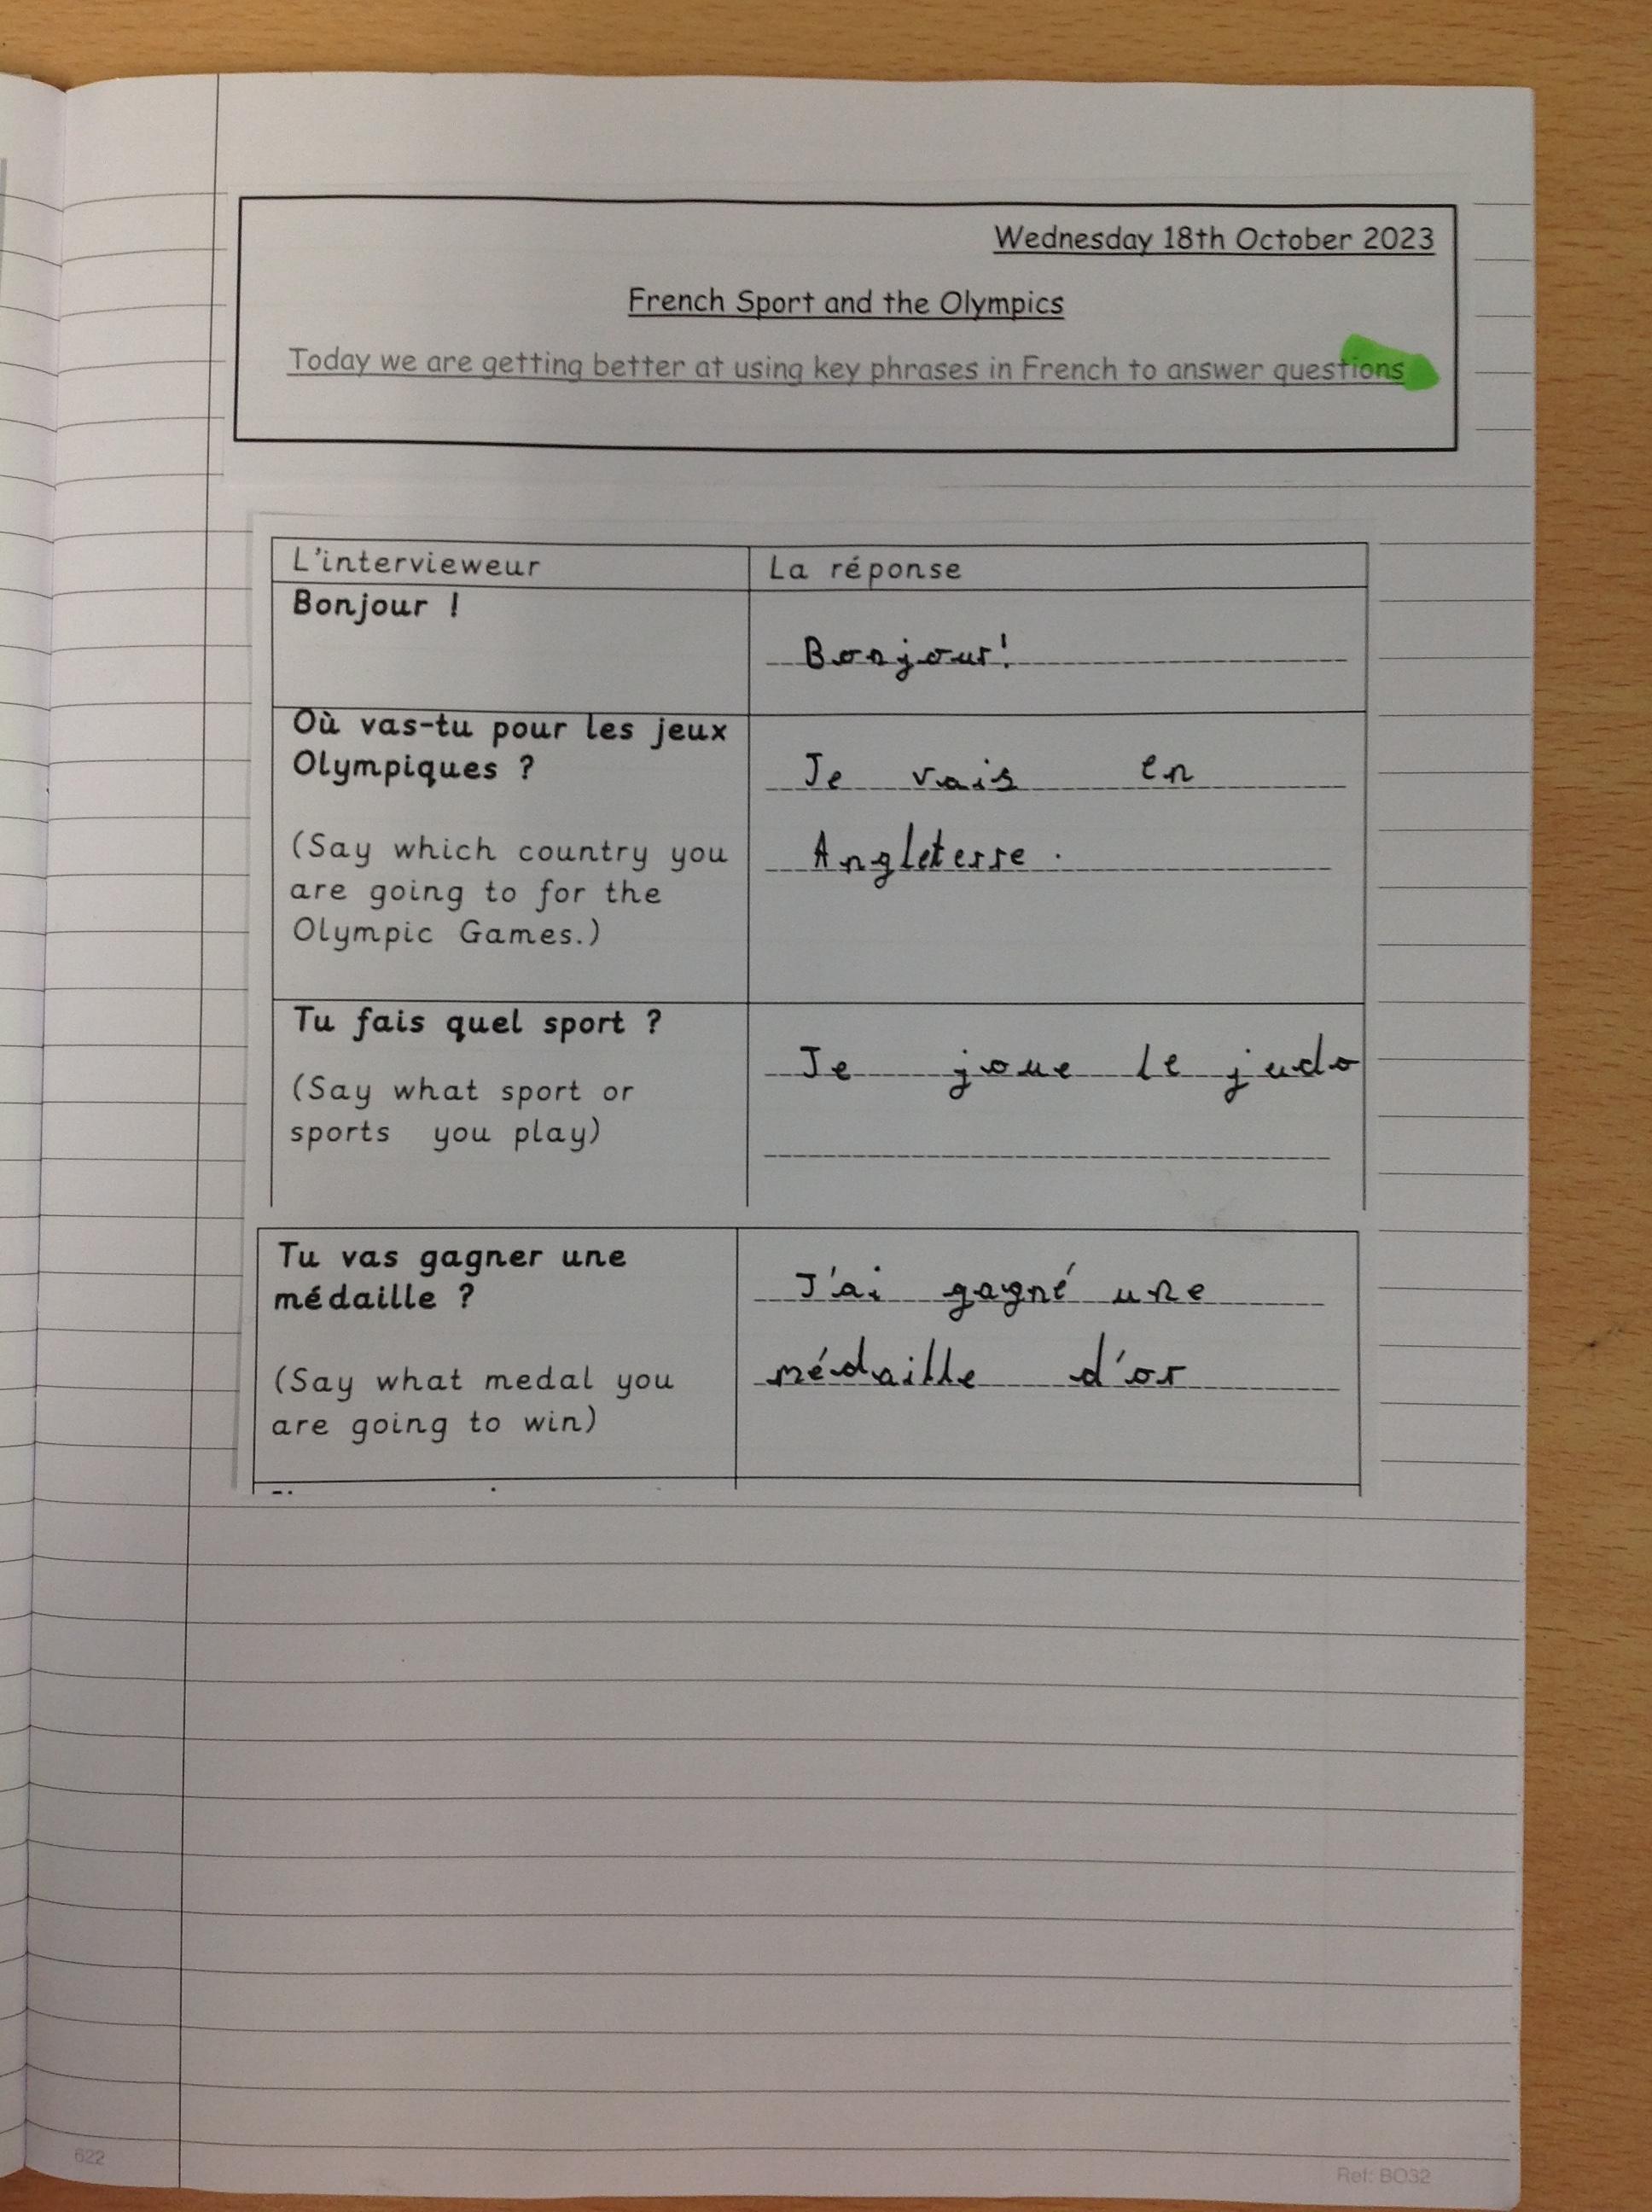 Wednesday 18th October 2023
French Sport and the Olympics
Today we are getting better at using key phrases in French to answer questions
L'intervieweur
La réponse
Bonjour !
Bonjour!
Où vas-tu pour les jeux
Olympiques ?
(Say which country you
are going to for the
Olympic Games.)
Je vais en
Angleterre.
Tu fais quel sport ?
(Say what sport or
sports you play)
Je joue le judo
Tu vas gagner une
médaille ?
(Say what medal you
are going to win)
J'ai gagné une
médaille d'or
622
Ref: BO32